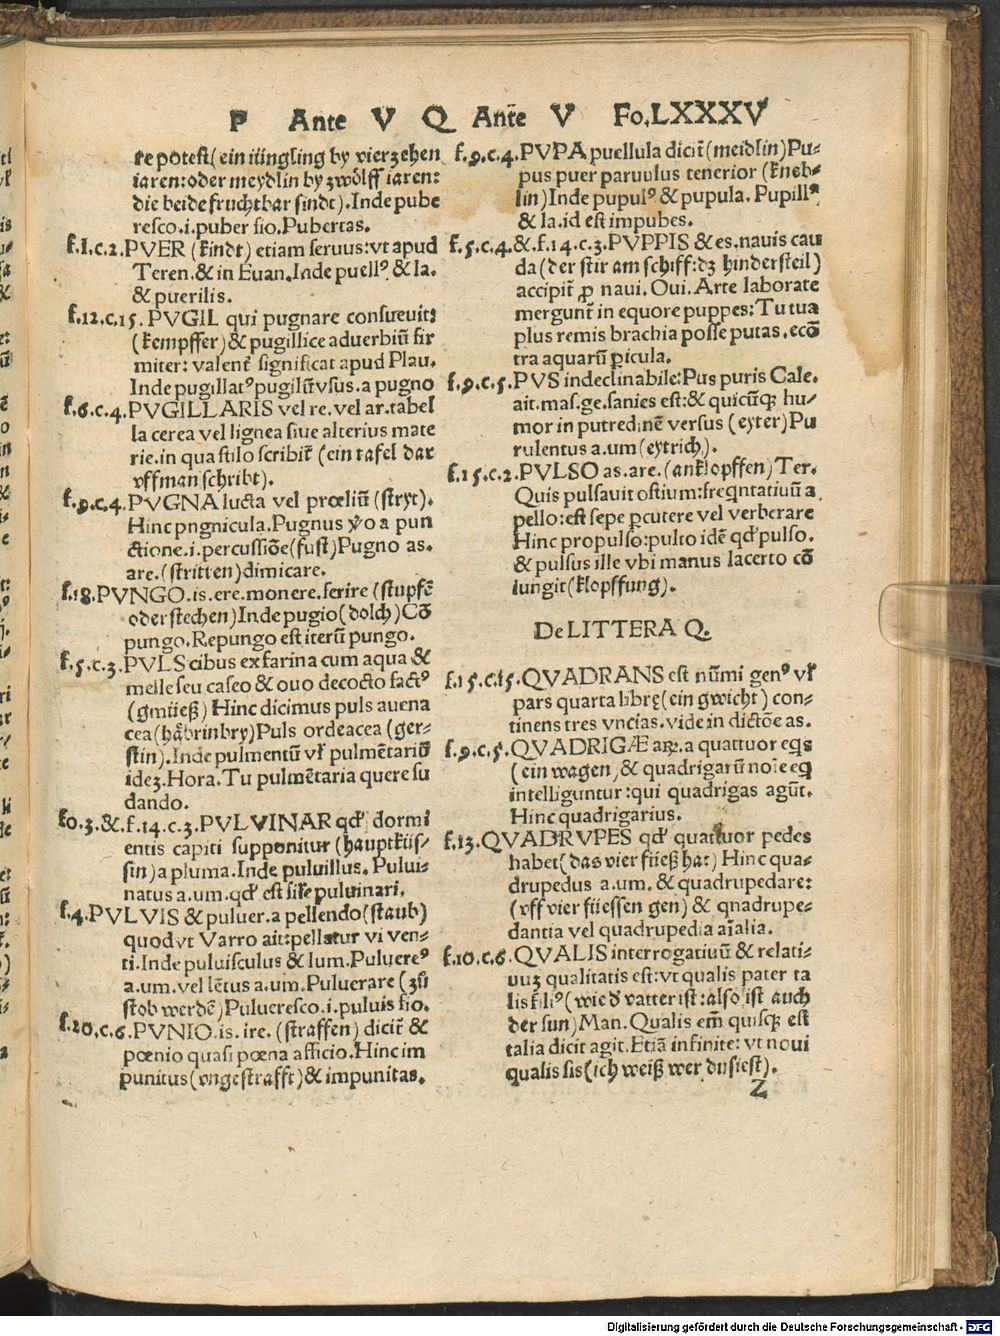 P Ante V Q Ante V Fo.LXXXV
re potest(ein iüngling by vierzehen
iaren:oder meydlin by zwölff iaren:
die beide fruchtbar sindt).Inde pube
resco.i.puber fio.Pubertas.
f.1.c.2.PVER (kindt) etiam seruus:vt apud
Teren.& in Euan.Inde puellꝰ & la.
& puerilis.
f.12.c.15. PVGIL qui pugnare consueuit:
(kempffer)& pugillice aduerbiũ fir
miter: valent̃ significat apud Plau.
Inde pugillatꝰ pugilũ vsus.a pugno
f.6.c.4.PVGILLARIS vel re.vel ar.tabel
la cerea vel lignea siue alterius mate
rie.in qua stilo scribit̃ (ein tafel dar
vff man schribt).
f.9.c.4.PVGNA lucta vel prœliũ (stryt).
Hinc pngnicula.Pugnus ꝟo a pun
ctione.i.percussiõe(fust)Pugno as.
are.(stritten)dimicare.
f.18.PVNGO.is.ere.monere.ferire (stupfẽ
oder stechen)Inde pugio(dolch)Cõ
pungo.Repungo est iterũ pungo.
f.5.c.3.PVLS cibus ex farina cum aqua &
melle seu caseo & ouo decocto factꝰ
(gmüeß) Hinc dicimus puls auena
cea(håbrinbry)Puls ordeacea (ger-
stin).Inde pulmentũ vł pulmẽtariũ
ideꝫ.Hora.Tu pulmẽtaria quere su
dando.
fo.3.&.f.14.c.3.PVLVINAR qđ dormi
entis capiti supponitur (hauptküs-
sin)a pluma.Inde puluillus. Pului-
natus a.um.qđ est sile puluinari.
f.4.PVLVIS & puluer.a pellendo(staub)
quod vt Varro ait:pellatur vi ven-
ti.Inde puluisculus & lum.Puluereꝰ
a.um.vel lẽtus a.um.Puluerare (zů
stob werdẽ)Pulueresco.i.puluis fio.
f.20.c.6.PVNIO.is.ire. (straffen) dicit̃ &
pœnio quasi pœna afficio.Hinc im
punitus(vngestrafft)& impunitas.
f.9.c.4.PVPA puellula dicit̃(meidlin)Pu-
pus puer paruulus tenerior (kneb-
lin)Inde pupulꝰ & pupula. Pupillꝰ
& la.id est impubes.
f.5.c.4.&.f.14.c.3.PVPPIS & es.nauis cau
da(der stir am schiff:dꝫ hindersteil)
accipit̃ ꝓ naui.Oui.Arte laborate
mergunt̃ in equore puppes:Tu tua
plus remis brachia posse putas.ecõ
tra aquarũ pericula.
f.9.c.5.PVS indeclinabile:Pus puris Cale.
ait.mas.ge.sanies est:& quicũqꝫ hu-
mor in putredinẽ versus (eyter)Pu
rulentus a.um(eytrich).
f.15.c.2.PVLSO as.are.(anklopffen)Ter.
Quis pulsauit ostium:freqntatiuũ a
pello:est sepe ꝑcutere vel verberare
Hinc propulso:pulto idẽ qđ pulso.
& pulsus ille vbi manus lacerto cõ
iungit̃(klopffung).
De LITTERA Q.
f.15.c.15.QVADRANS est nũmi genꝰ vł
pars quarta librę(ein gwicht) con-
tinens tres vncias.vide in dictõe as.
f.9.c.5.QVADRIGÆ aꝝ.a quattuor eqs
(ein wagen)& quadrigarũ noie eq
intelliguntur:qui quadrigas agũt.
Hinc quadrigarius.
f.13.QVADRVPES qđ quattuor pedes
habet(das vier füeß hat) Hinc qua-
drupedus a.um. & quadrupedare:
(vff vier füessen gen) & qnadrupe-
dantia vel quadrupedia aĩalia.
f.10.c.6.QVALIS interrogatiuũ & relati-
uuꝫ qualitatis est:vt qualis pater ta
lis filiꝰ(wie d vatter ist:also ist auch
der sun)Man.Qualis em̃ quisqꝫ est
talia dicit agit.Etiã infinite: vt noui
qualis sis(ich weiß wer du siest).
Z
Digitalisierung gefördert durch die Deutsche Forschungsgemeinschaft - DFG